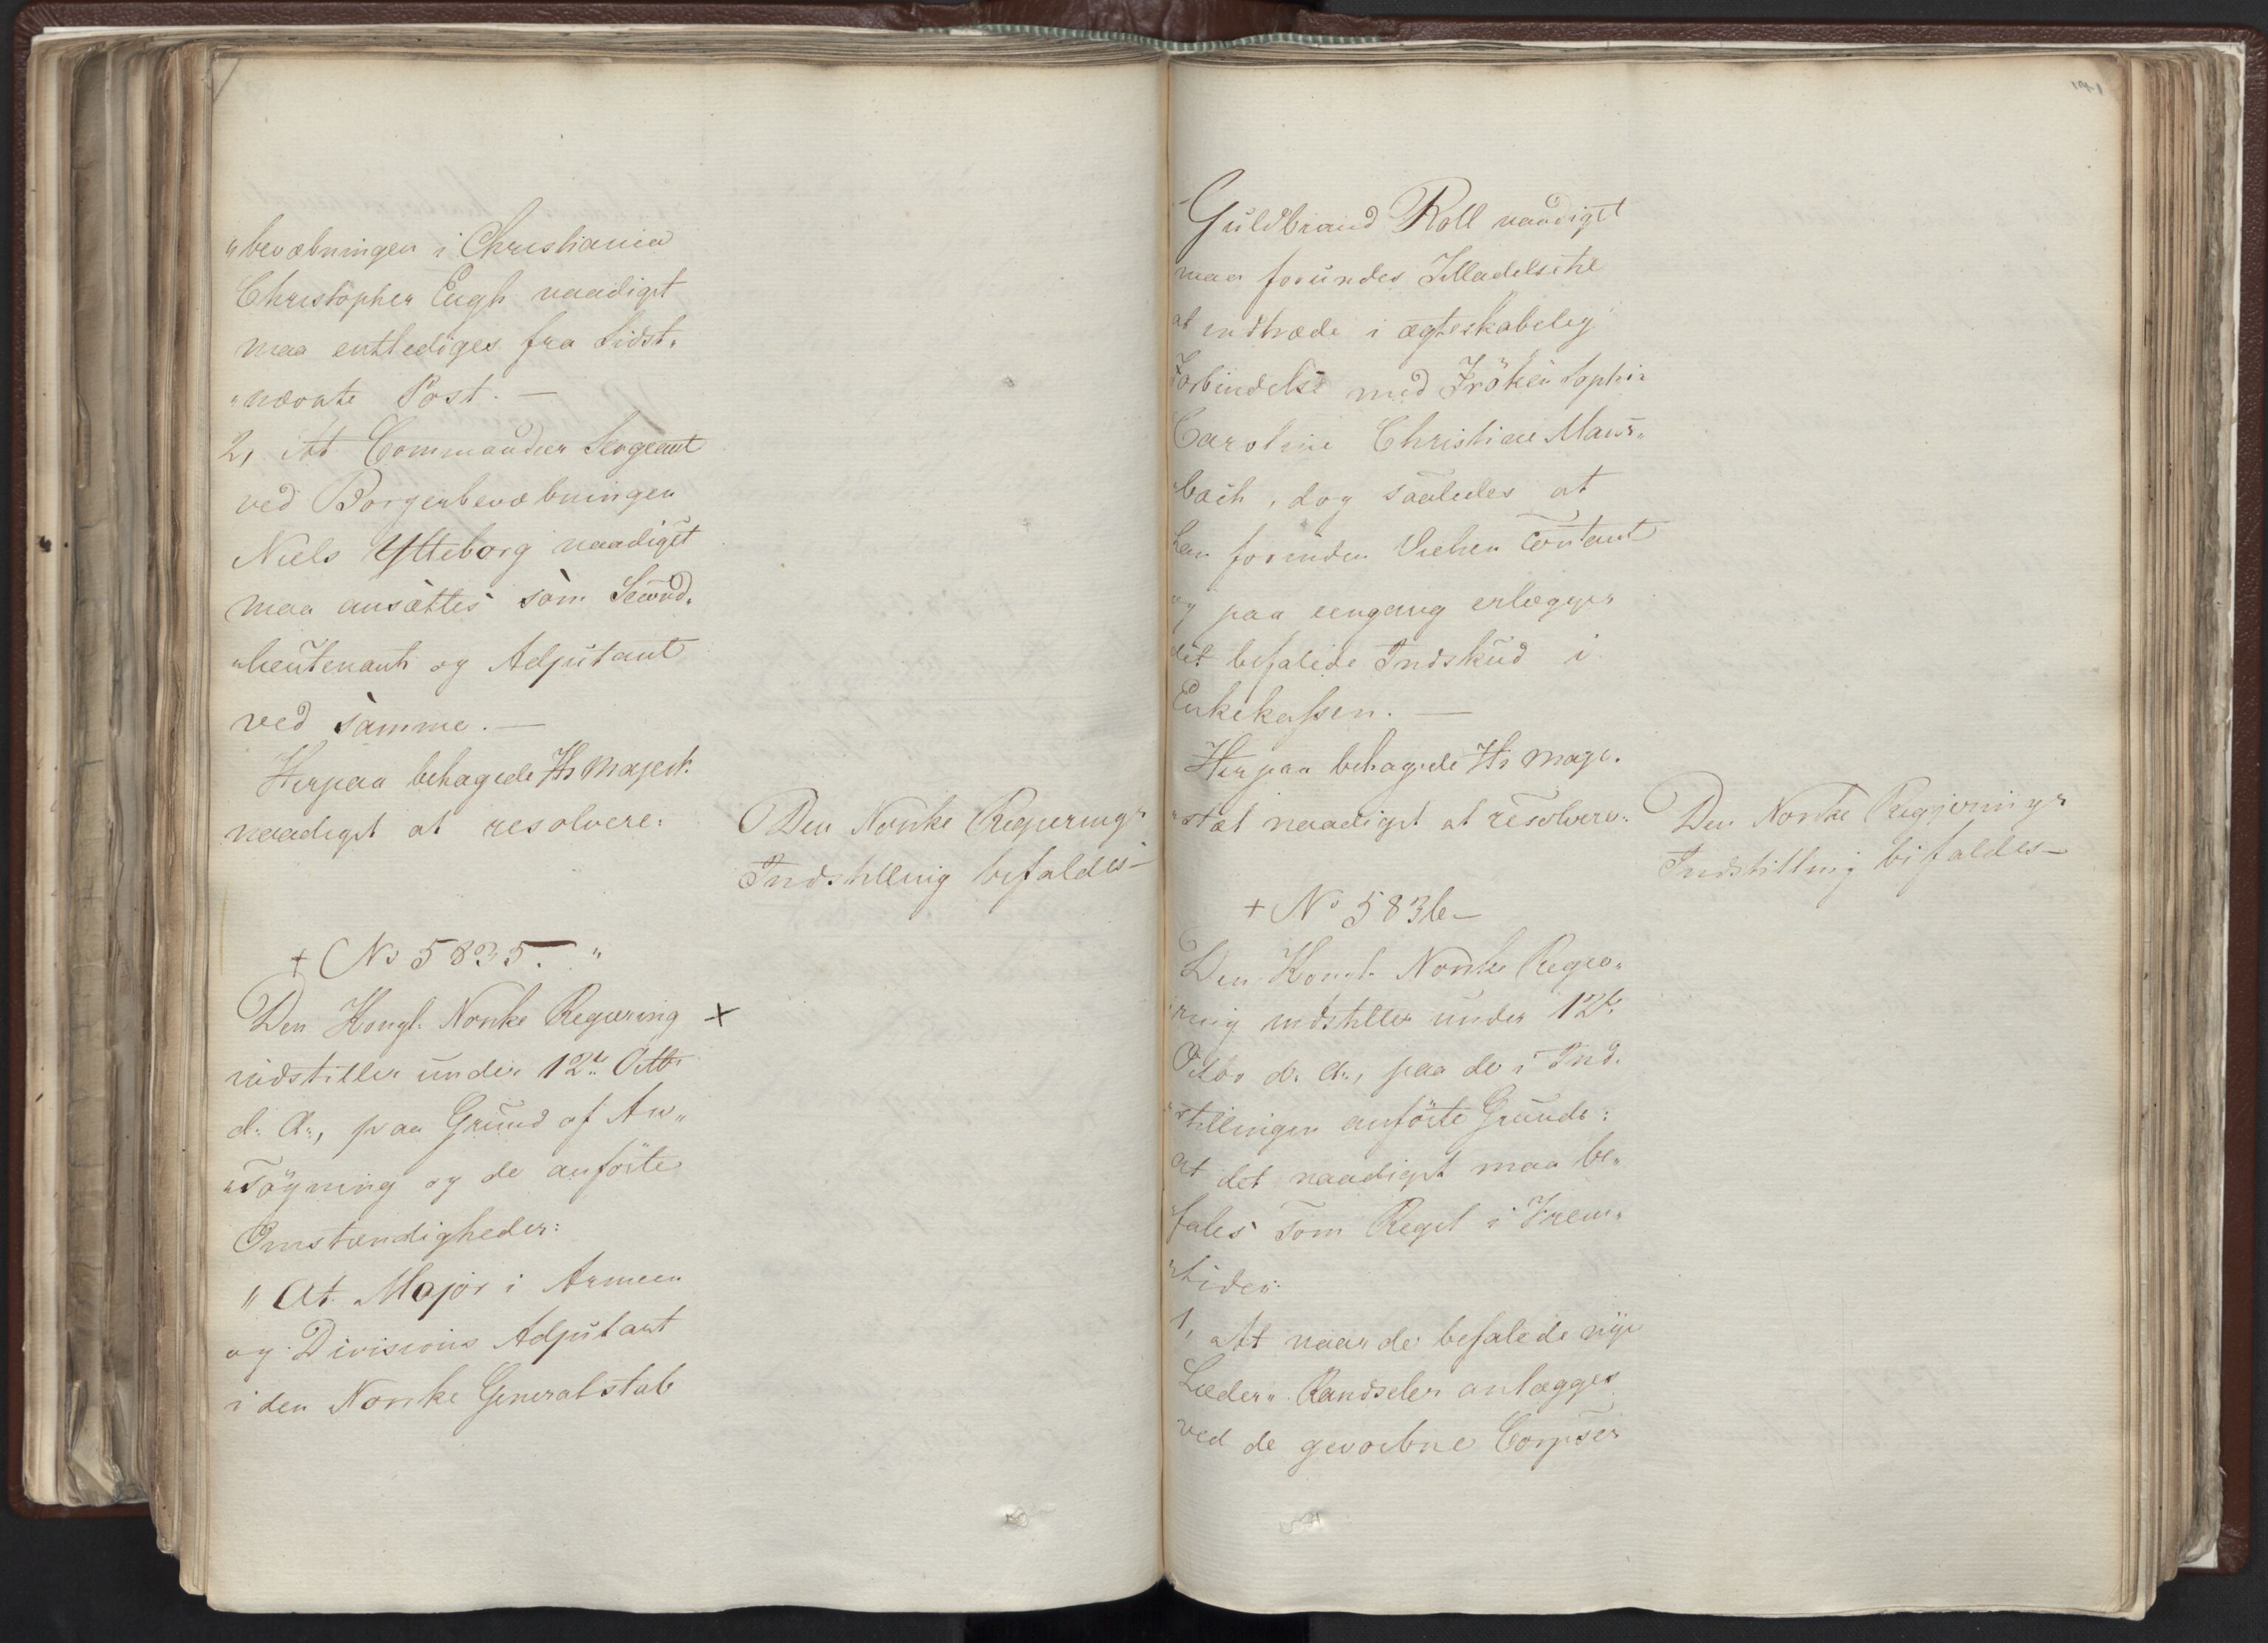 „bevæbningen i Christiania
Christopher Eugh naadigst
maa entlediges fra sidst„
„nævnte Post. —
2, At Commandeer Sergeant
ved Borgerbevæbningen
Niels Ytteborg naadigst
maa ansættes som Second„
„lieutenant og Adjutant
ved samme. —
Herpaa behagede Hs Majest.
naadigst at resolvere:
Den Norske Regjerings
Indstilling bifaldes —
+ No 5835. "
Den Kongl. Norske Regjering +
indstiller under 12te Octbr
d. A., paa Grund af An„
„søgning og de anførte
Omstændigheder:
" At Major i Armeen
og Divisions Adjutant
i den Norske Generalstab
141
Guldbrand Roll naadigst
maa forundes Tilladelse til
at indtræde i ægteskabelig
Forbindelse med Frøken Sophie
Caroline Christiane Mans„
„bach, dog saaledes at
han forinden Vielsen contant
og paa eengang erlægger
det befalede Indskud i
Enkekassen. —
Herpaa behagede Hs Maje„
„stæt naadigst at resolvere:
Den Norske Regjerings
Indstilling bifaldes —
+ No 5836 —
Den Kongl. Norske Regje„
„ring indstiller under 12te
Octbr d. A., paa de i Ind„
„stillingen anførte Grunde:
At det naadigst maa be„
„fales som Regel i Frem„
„tiden:
1, At naar de befalede nye
Læder„ Randseler anlægges
ved de gevorbne Corpser